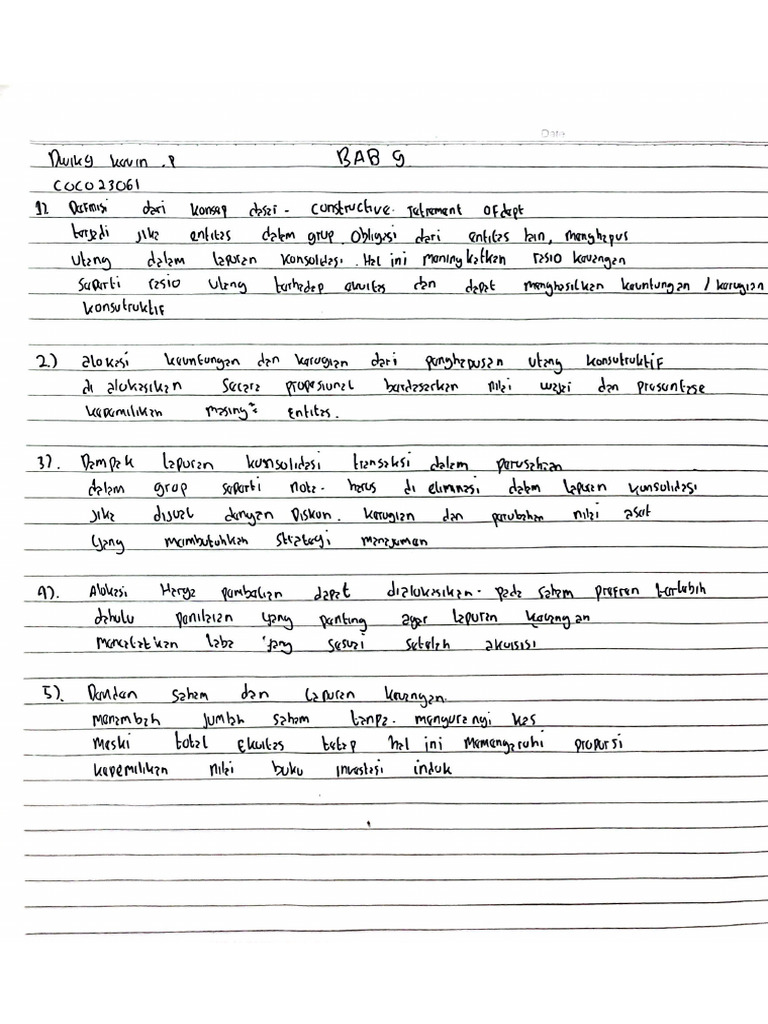 Date
Dwiky Kevin .P BAB 9
COC023061
1). Definisi dari konsep dasar - constructive retirement of dept
terjadi jika entitas dalam grup Obligasi dari entitas lain, menghapus
utang dalam laporan konsolidasi. Hal ini meningkatkan rasio keuangan
seperti rasio utang terhadap ekuitas dan dapat menghasilkan keuntungan / kerugian
konsutruktif
2.) alokasi keuntungan dan kerugian dari penghapusan utang konsutruktif
di alokasikan secara proposional berdasarkan nilai wajar dan presentase
kepemilikan masing² entitas.
3). Dampak laporan konsolidasi transaksi dalam perusahaan
dalam grup seperti nota - harus di eliminasi dalam laporan konsolidasi
jika dijual dengan Diskon. kerugian dan perubahan nilai aset
yang membutuhkan strategi manajemen
4). Alokasi Harga pembelian dapat dialokasikan - pada saham prefren terlebih
dahulu penilaian yang penting agar laporan keuangan
mencatatkan laba yang sesuai setelah akuisisi
5). Deviden saham dan laporan keuangan.
menambah jumlah saham tanpa - mengurangi kas
meski total ekuitas tetap hal ini memengaruhi proporsi
kepemilikan nilai buku investasi induk